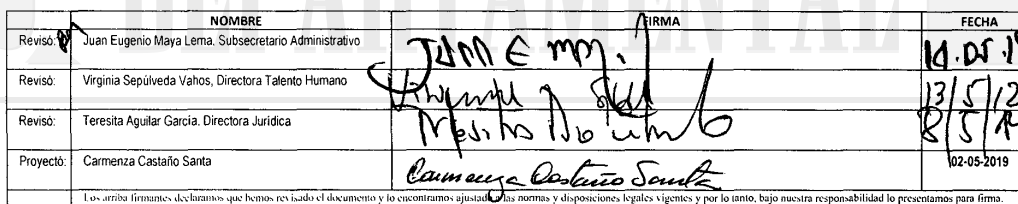 DEPARTAMENTAL
NOMBRE FIRMA FECHA
Revisó: Juan Eugenio Maya Lema. Subsecretario Administrativo
Revisó: Virginia Sepúlveda Vahos, Directora Talento Humano 13/5/
Revisó: Teresita Aguilar García. Directora Jurídica 8/5/
Proyectó: Carmenza Castaño Santa Carmenza Castaño Santa 02-05-2019
Los arriba firmantes declaramos que hemos revisado el documento y lo encontramos ajustado a las normas y disposiciones legales vigentes y por lo tanto, bajo nuestra responsabilidad lo presentamos para firma.